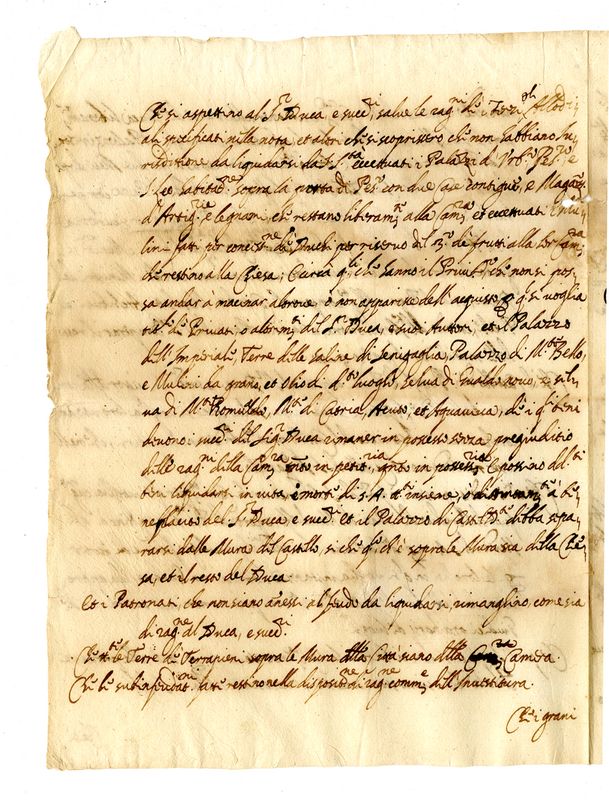 Che si aspettino al S.r Duca, e succ.ri, salve le rag.ni de i Terzi, Alodi
ali specificati nella nota, et altri che si scoprissero che non habbiano Iu
risdittione da liquidarsi da S. S.ta eccettuati i Palazzi d'Urb.o, Pes.o, e
S. Leo habitat.ne sopra la porta di Pes.o con due Case contigue, e Magaz.ni
d'Artig.rie e legnami, che restano liberam.te alla Cam.ra et eccettuati
lini fatti per concess.ne de Duchi per riservo del di frutti alla Cam.ra
che restino alla Chiesa; Circa q.lli che hanno il Privil.o che non si pos
sa andar à macinar altrove o non apparisce dell'acquisto, q.si voglia
tit.o di Privati, o altrim.ti del S.r Duca, e suoi Autori, et il Palazzo
dell'Imperiale, Terre delle Saline di Senigaglia, Palazzo di M.te Bello,
e Mulini da grano, et Olio di d.ti luoghi, Selva di Gualdo novo, e sel
va di M.te Romaldo, M.te di Catria, Acuto, et Aquaviva, de i q.li beni
devono i succ.ri del Sig.r Duca rimaner in possesso senza pregiuditio
delle rag.ni della Cam.ra tanto in petit.rio, quanto in possess.rio e possino dd.ti
beni liquidarsi in vita, e morte di S. A. et insieme, à be
neplacito del S.r Duca e succ.ri et il Palazzo di Castel D.te debba sepa
rarsi dalle Mura del Castello, si che q.el ch'è sopra le Mura sia della Chie
sa, et il resto del Duca
Et i Patronati, che non siano annessi al feudo da liquidarsi, rimanghino, come sia
di rag.ne del Duca, e succ.ri
Che tt.e le Terre de Terrapieni sopra le Mura della Città siano della Camera
Che le subinfeudat.ni fatte restino nella disposit.ne di rag.ne comm.e dell'Investitura.
Che i grani